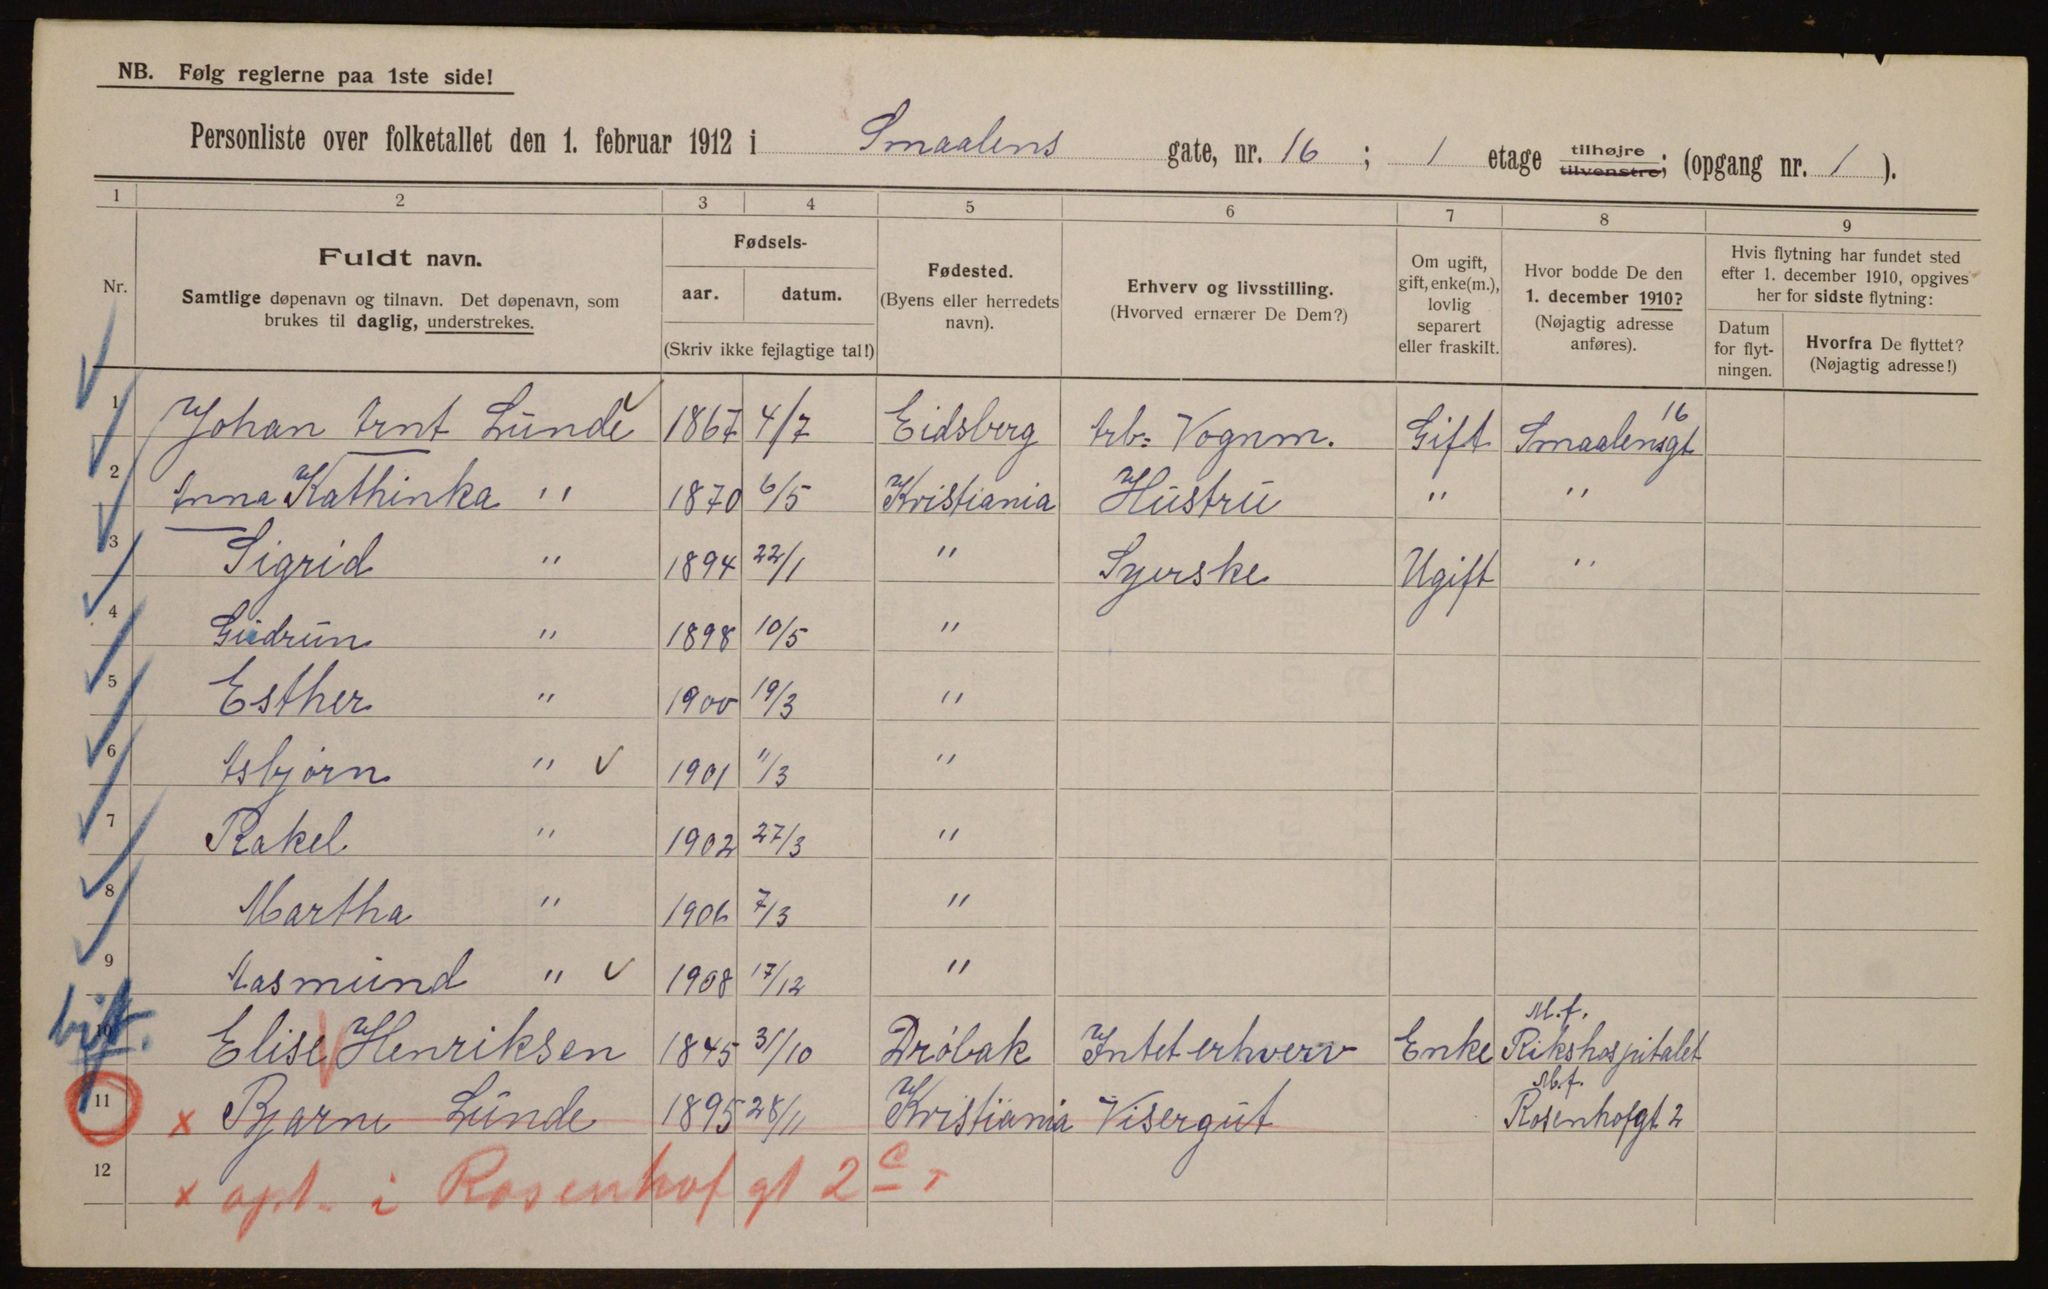 NB. Følg reglerne paa 1ste side!
Personliste over folketallet den 1. februar 1912 i Smaalens gate, nr. 16 ; 1 etage tilhøjre tilvenstre; (opgang nr. 1 ).
1 2 3 4 5 6 7 8 9
Nr.
Fuldt navn.
Samtlige døpenavn og tilnavn. Det døpenavn, som
brukes til daglig, understrekes.
Fødsels-
aar. datum.
(Skriv ikke fejlagtige tal!)
Fødested.
(Byens eller herredets
navn).
Erhverv og livsstilling.
(Hvorved ernærer De Dem?)
Om ugift,
gift, enke(m.),
lovlig
separert
eller fraskilt.
Hvor bodde De den
1. december 1910?
(Nøjagtig adresse
anføres).
Hvis flytning har fundet sted
efter 1. december 1910, opgives
her for sidste flytning:
Datum
for flyt-
ningen.
Hvorfra De flyttet?
(Nøjagtig adresse!)
1 Johan Arnt Lunde 1867 4/7 Eidsberg Arb: Vognm. Gift Smaalensgt 16
2 Anna Kathinka " 1870 6/5 Kristiania Hustru " "
3 Sigrid " 1894 22/1 " Syerske Ugift "
4 Gudrun " 1898 10/5 "
5 Esther " 1900 19/3 "
6 Asbjørn " 1901 11/3 "
7 Rakel " 1902 27/3 "
8 Martha " 1906 7/3 "
9 Aasmund " 1908 17/12 "
10 Elise Henriksen 1845 31/10 Drøbak Intet erhverv Enke M.f. Rikshospitalet
11 x Bjarne Lunde 1895 28/11 Kristiania Visergut M.f. Rosenhofgt 2
12 x opt. i Rosenhof gt 2 c